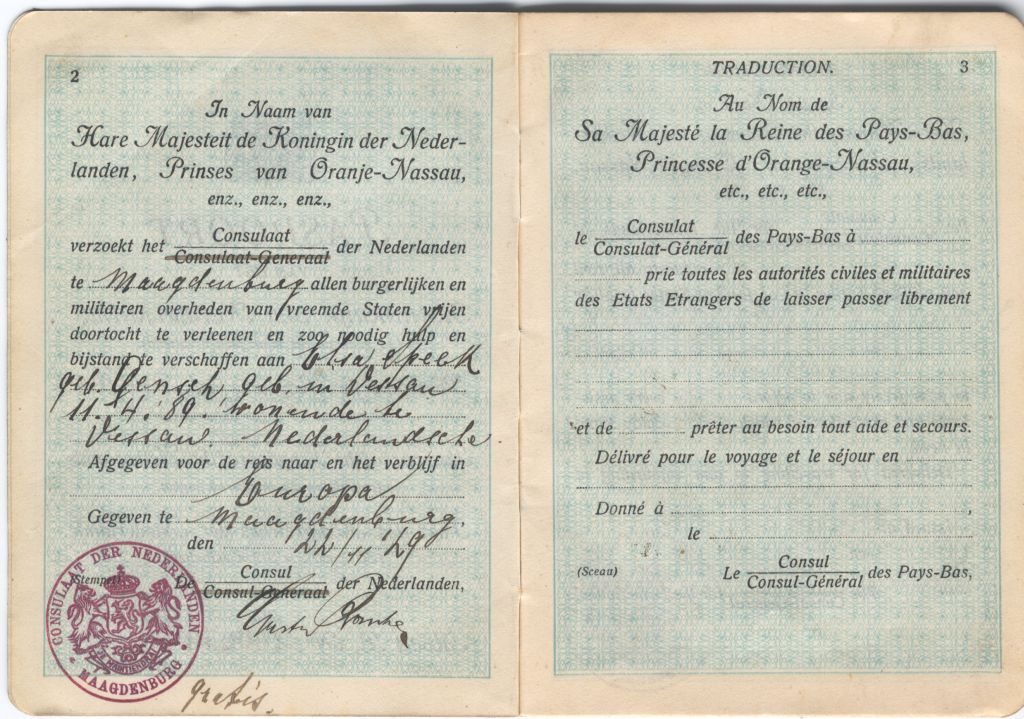 2
In Naam van
Hare Majesteit de Koningin der Neder-
landen, Prinses van Oranje-Nassau,
enz., enz., enz.,
verzoekt het Consulaat der Nederlanden
Consulaat-Generaal
te Maagdenburg allen burgerlijken en
militairen overheden van vreemde Staten vrijen
doortocht te verleenen en zoo noodig hulp en
bijstand te verschaffen aan Elsa Speek
geb. geb. in Dessau
11.-4.'89. wonende te
Dessau. Nederlandsche.
Afgegeven voor de reis naar en het verblijf in
Europa
Gegeven te Maagdenburg,
den 22/11 '29
(Stempel) De Consul der Nederlanden,
Consul-Generaal
CONSULAAT DER NEDERLANDEN
JE MAINTIENDRAI
MAAGDENBURG
gratis.
TRADUCTION. 3
Au Nom de
Sa Majesté la Reine des Pays-Bas,
Princesse d'Orange-Nassau,
etc., etc., etc.,
le Consulat des Pays-Bas à
Consulat-Général
prie toutes les autorités civiles et militaires
des Etats Etrangers de laisser passer librement
et de prêter au besoin tout aide et secours.
Délivré pour le voyage et le séjour en
Donné à ,
le
(Sceau) Le Consul des Pays-Bas,
Consul-Général